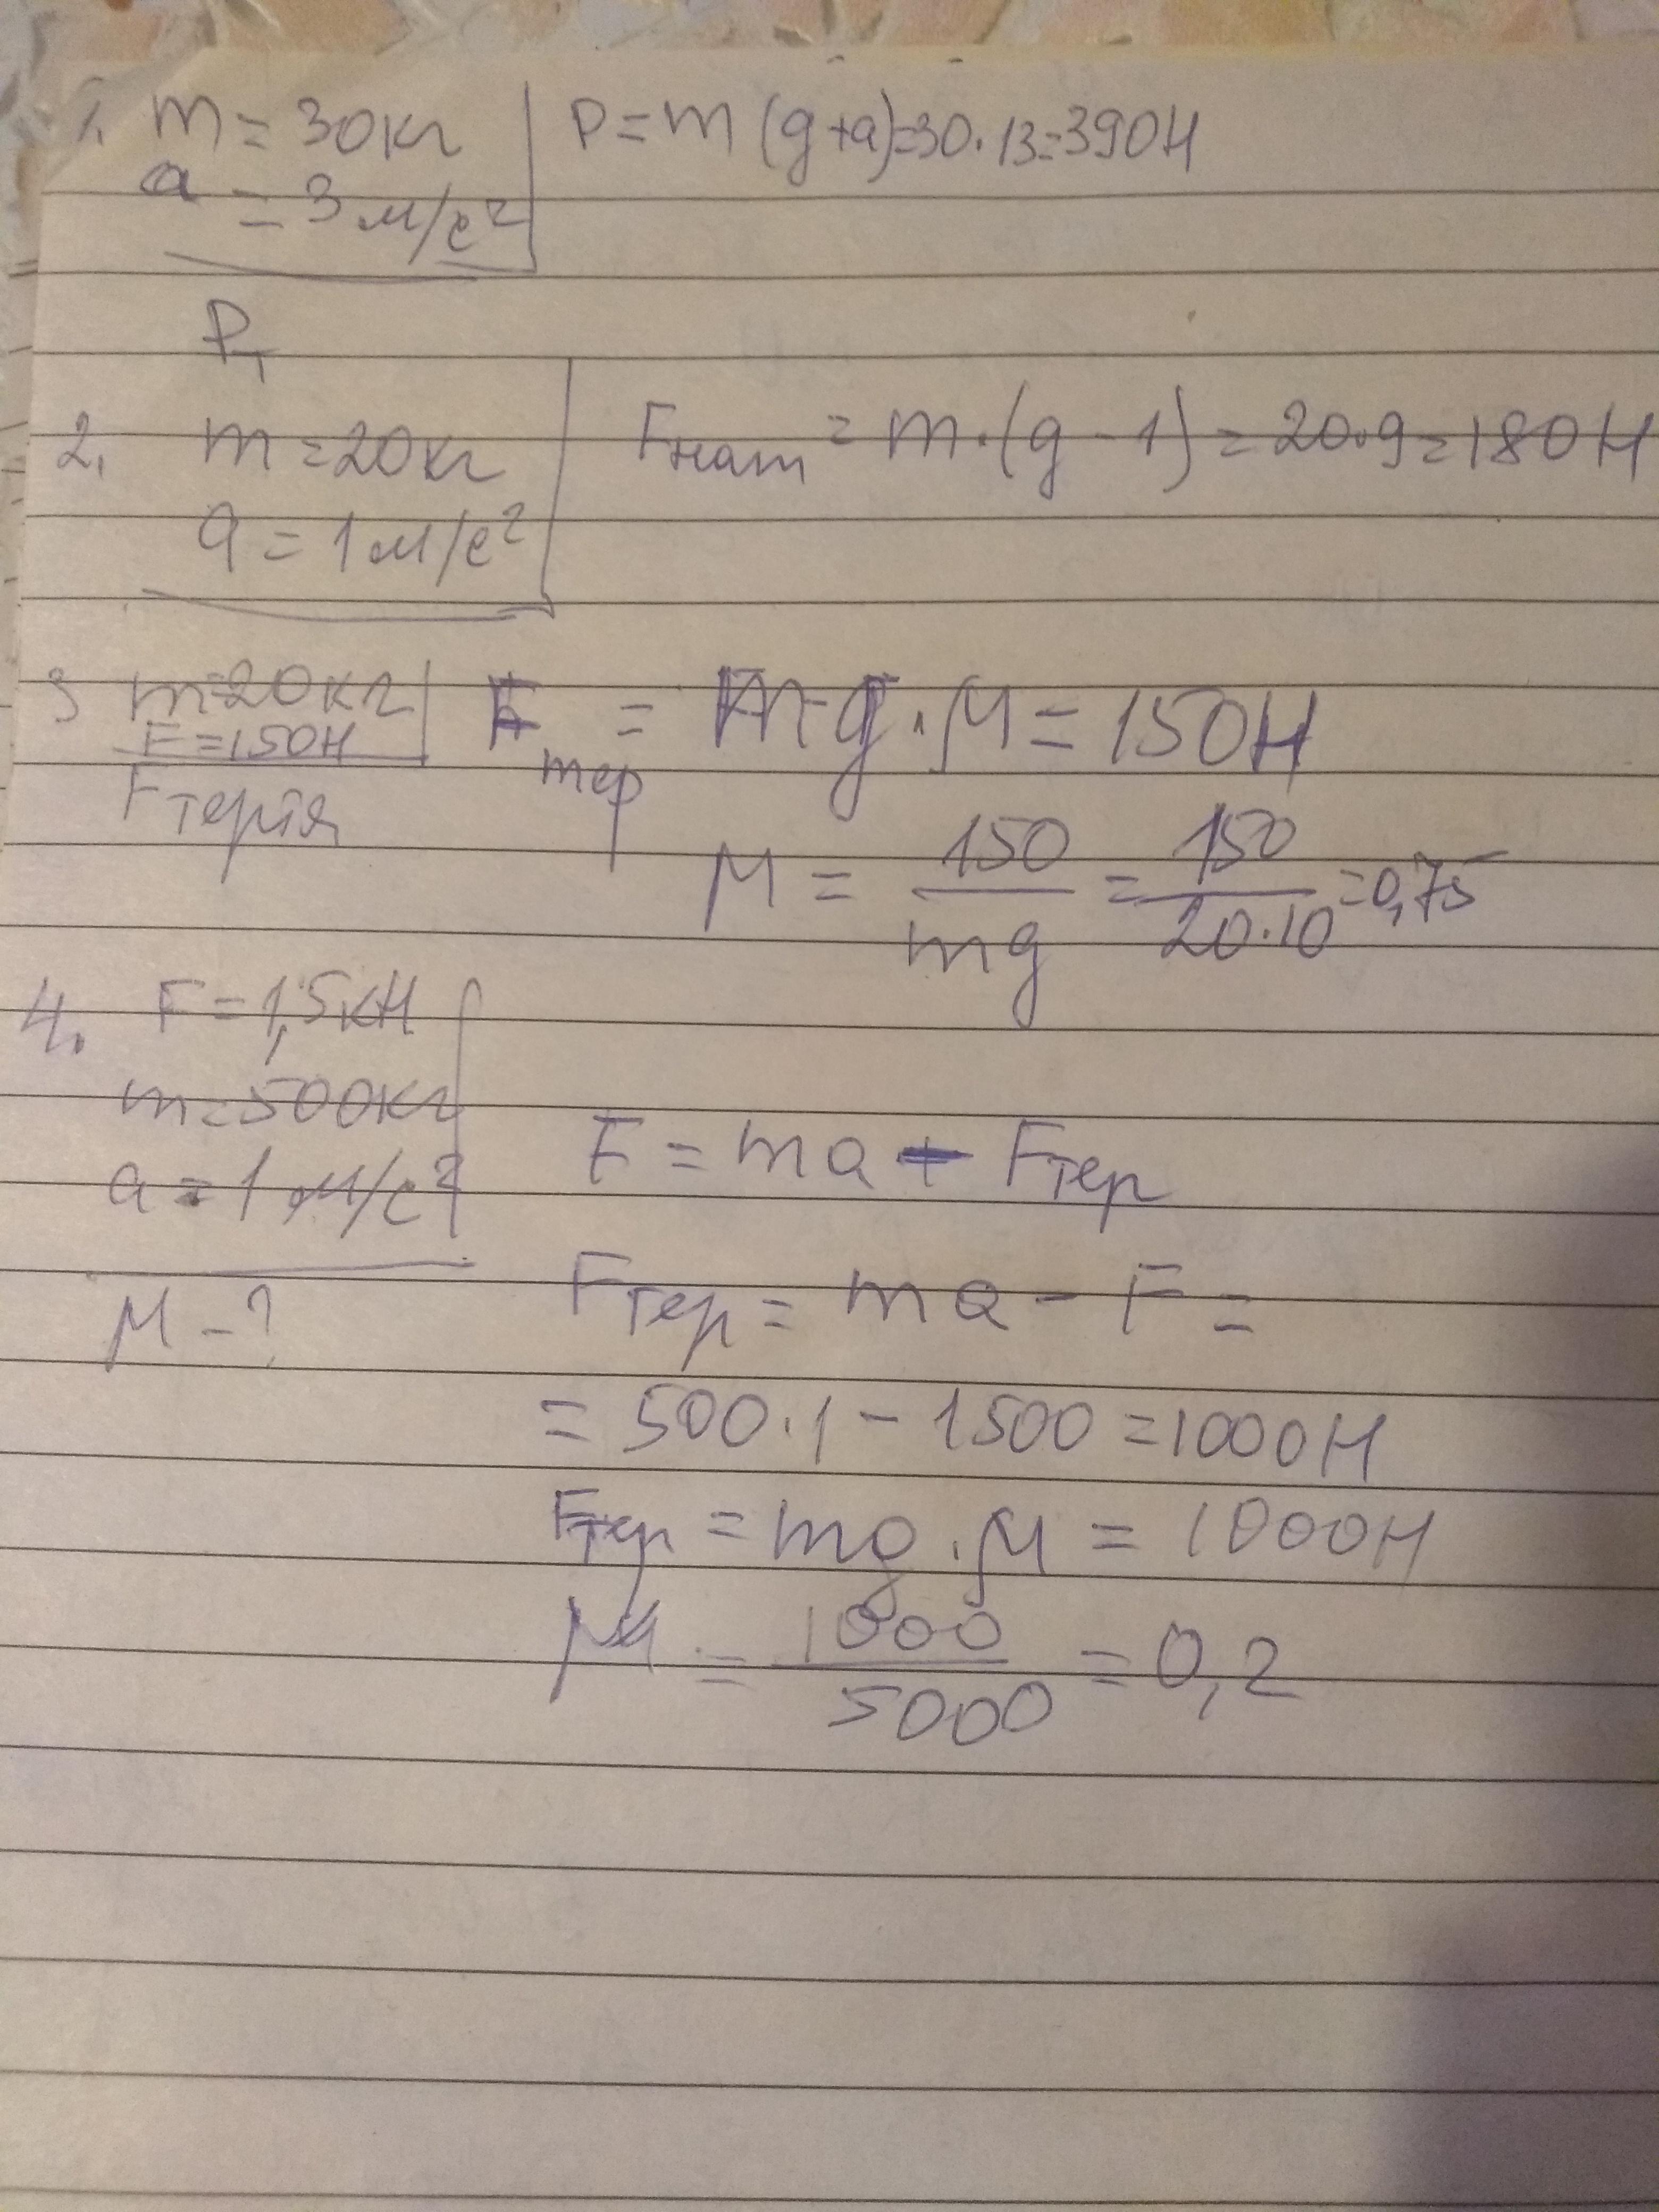 1. m = 30кг P = m (g+a)=30·13=390Н
a = 3 м/с²
P₁
2. m = 20кг Fнат = m·(g - 1) = 20·9=180Н
a = 1 м/с²
3 m=20кг Fтер = mg·μ = 150Н
F = 150Н
Fтертя
μ = 150/mg = 150/20·10 = 0,75
4. F = 1,5кН
m = 500кг
a = 1 м/с² F = ma + Fтер
Fтер = ma - F =
μ - ?
= 500·1 - 1500 = 1000Н
Fтер = mg·μ = 1000Н
μ = 1000/5000 = 0,2